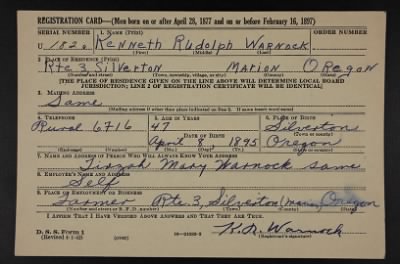 REGISTRATION CARD—(Men born on or after April 28, 1877 and on or before February 16, 1897)
SERIAL NUMBER 1. NAME (Print) ORDER NUMBER
U 182 Kenneth Rudolph Warnock
(First) (Middle) (Last)
2. PLACE OF RESIDENCE (Print)
Rte 3 Silverton Marion Oregon
(Number and street) (Town, township, village, or city) (County) (State)
[THE PLACE OF RESIDENCE GIVEN ON THE LINE ABOVE WILL DETERMINE LOCAL BOARD
JURISDICTION; LINE 2 OF REGISTRATION CERTIFICATE WILL BE IDENTICAL]
3. MAILING ADDRESS
Same
[Mailing address if other than place indicated on line 2. If same insert word same]
4. TELEPHONE 5. AGE IN YEARS 6. PLACE OF BIRTH
Rural 6716 47 Silverton
DATE OF BIRTH (Town or county)
April 8 1895 Oregon
(Exchange) (Number) (Mo.) (Day) (Yr.) (State or country)
7. NAME AND ADDRESS OF PERSON WHO WILL ALWAYS KNOW YOUR ADDRESS
Tirzah Mary Warnock same
8. EMPLOYER'S NAME AND ADDRESS
Self
9. PLACE OF EMPLOYMENT OR BUSINESS
Farmer Rte. 3, Silverton (Marion) Oregon
(Number and street or R. F. D. number) (Town) (County) (State)
I AFFIRM THAT I HAVE VERIFIED ABOVE ANSWERS AND THAT THEY ARE TRUE.
D. S. S. Form 1
(Revised 4-1-42) (over) K. R. Warnock
(Registrant's signature)